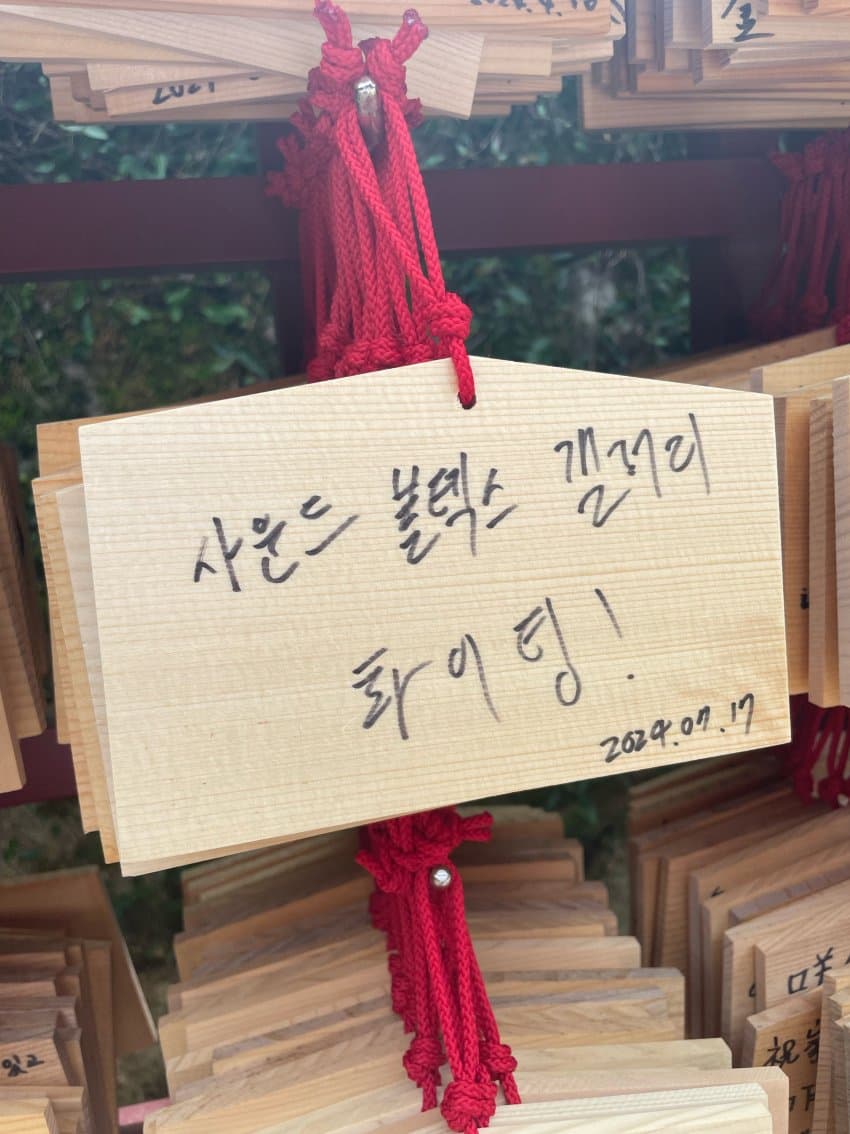 사운드 볼텍스 갤러리
화이팅!
2024.07.17